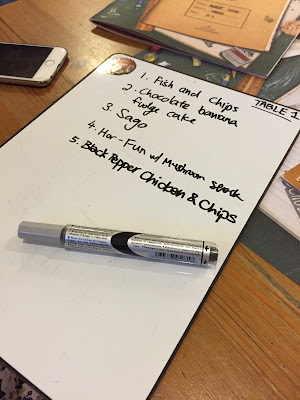 TABLE 1
1. Fish and Chips
2. Chocolate banana
fudge cake
3. Sago
4. Hor-Fun w/ Mushroom
5. Black Pepper Chicken & Chips